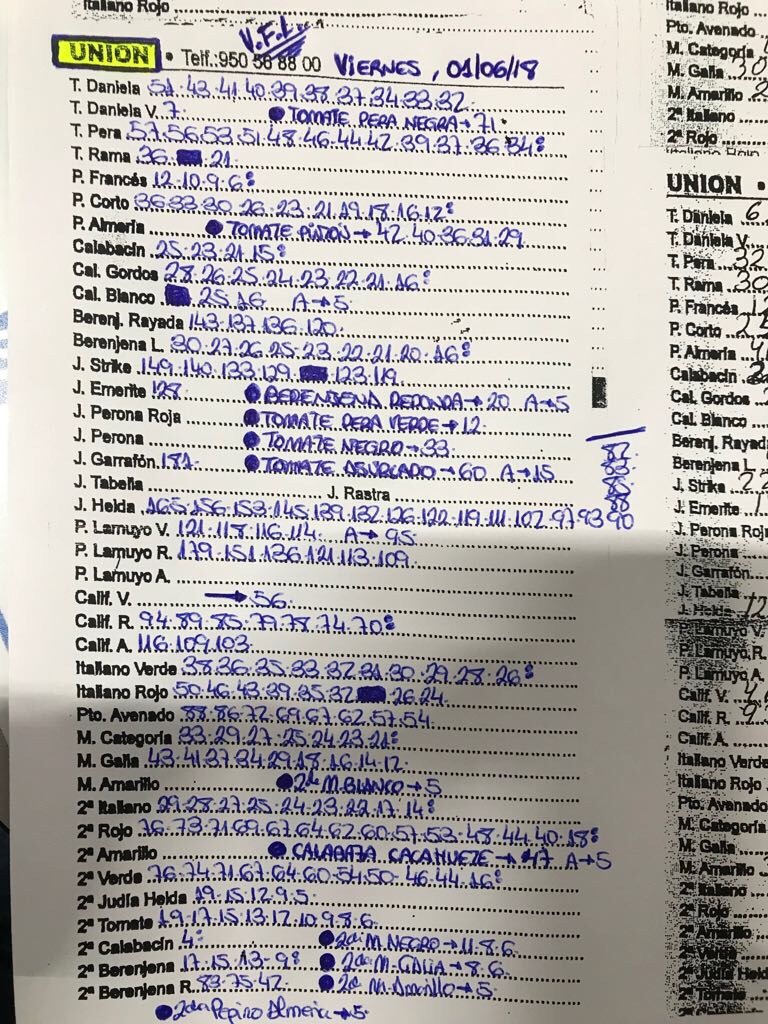 Italiano Rojo
V.F.L
UNION • Telf.:950 56 88 00 VIERNES, 01/06/18
T. Daniela 51.43.41.40.39.38.37.34.33.32.
T. Daniela V. 7. • TOMATE PERA NEGRA→71.
T. Pera 57.56.53.51.48.46.44.42.39.37.36.34
T. Rama 36. 21.
P. Francés 12.10.9.6
P. Corto 36.33.30.26.23.21.19.18.16.12
P. Almería • TOMATE PINTÓN→42.40.36.31.29
Calabacín 25.23.21.15
Cal. Gordos 28.26.25.24.23.22.21.16
Cal. Blanco 25.16 A→5.
Berenj. Rayada 143.137.136.120.
Berenjena L. 30.27.26.25.23.22.21.20.16
J. Strike 149.140.133.129. 123.119.
J. Emerite 128. • BERENJENA REDONDA→20 A→5
J. Perona Roja • TOMATE PERA VERDE→12.
J. Perona • TOMATE NEGRO→33.
J. Garrafón 181. • TOMATE ASURCADO→60 A→15
J. Tabella J. Rastra
J. Helda 165.156.153.145.139.132.126.122.119.111.102.97.93.90
88
P. Lamuyo V. 121.118.116.114. A→95.
P. Lamuyo R. 179.151.136.121.113.109.
P. Lamuyo A.
Calif. V. → 56.
Calif. R. 94.89.85.79.78.74.70
Calif. A. 116.109.103.
Italiano Verde 38.36.35.33.32.31.30.29.28.26
Italiano Rojo 50.46.43.39.35.32 26.24.
Pto. Avenado 88.86.72.69.67.62.57.54.
M. Categoría 33.29.27.25.24.23.21
M. Galia 43.41.37.34.29.18.16.14.12.
M. Amarillo • 2da M. BLANCO→5
2ª Italiano 29.28.27.25.24.23.22.17.14
2ª Rojo 76.73.71.69.67.64.62.60.57.53.48.44.40.18
2ª Amarillo • CALABAZA CACAHUETE→47 A→5
2ª Verde 76.74.71.67.64.60.54.50.46.44.16
2ª Judía Helda 19.15.12.9.5.
2ª Tomate 19.17.15.13.12.10.9.8.6.
2ª Calabacín 4 • 2da M. NEGRO→11.8.6.
2ª Berenjena 17.15.13.9 • 2da M. GALIA→8.6.
2ª Berenjena R. 83.75.42. • 2da M. Amarillo→5.
• 2da Pepino Almeria→5.
Italiano Rojo
Pto. Avenado
M. Categoría
M. Galia 30
M. Amarillo
2ª Italiano
2ª Rojo
UNION •
T. Daniela 6
T. Daniela V.
T. Pera 32
T. Rama 30
P. Francés
P. Corto
P. Almería
Calabacín
Cal. Gordos
Cal. Blanco
Berenj. Rayada
Berenjena L.
J. Strike
J. Emerite
J. Perona Roja
J. Perona
J. Garrafón
J. Tabella
J. Helda 12
P. Lamuyo V.
P. Lamuyo R.
P. Lamuyo A.
Calif. V.
Calif. R. 9
Calif. A.
Italiano Verde
Italiano Rojo
Pto. Avenado
M. Categoría
M. Galia
M. Amarillo
2ª Italiano
2ª Rojo
2ª Amarillo
2ª Verde
2ª Judía Held
2ª Tomate